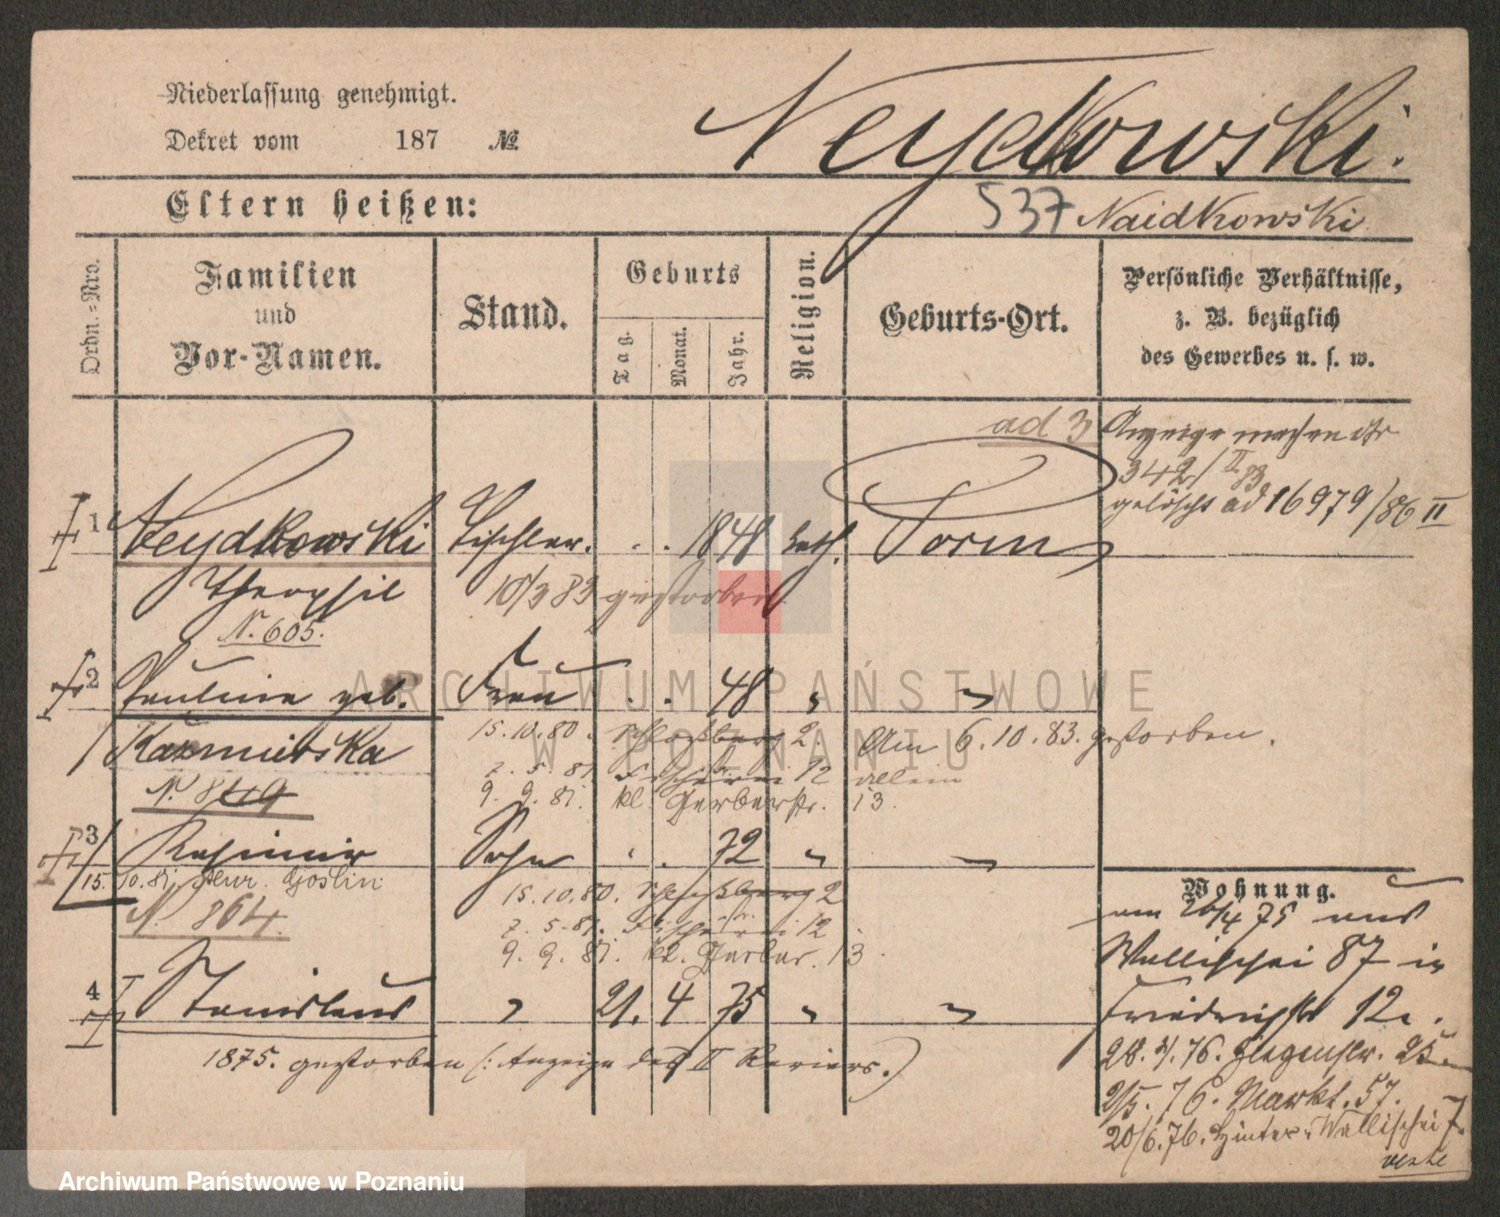 Niederlassung genehmigt.
Dekret vom 187 №
Neydkowski.
Eltern heißen:
537 Naidkowski
Ordn.-Nro.
Familien
und
Vor-Namen.
Stand.
Geburts
Tag.
Monat.
Jahr.
Religion.
Geburts-Ort.
Persönliche Verhältnisse,
z. B. bezüglich
des Gewerbes u. s. w.
ad 3 Anzeige machen
342/II 83
gelöscht ad 16979/86 II
1 Neydkowski Tischler. . . 1848 kath. Posen
Theophil 10/3 83 gestorben
N. 605.
2 Pauline geb. Frau . . 48 " "
Kazmierska 15.10.80. Schloßberg 2 Am 6.10.83. gestorben.
7. 5. 81. Fischerei 12 allein
N. 849 9. 9. 81. kl. Gerberstr. 13.
3 Kasimir Sohn . . 72 " "
15.10.81. Goslin 15.10.80. Schloßberg 2
N. 864. 7. 5. 81. Fischerei 12
9. 9. 81. kl. Gerber. 13.
4 Stanislaus " 21. 4 75 " "
1875. gestorben (: Anzeige des II Reviers.)
Wohnung.
am 26/4 75 aus
Wallischei 87 in
Friedrichstr 12.
28. 4. 76.
2/5. 76. Markt. 57.
20/6. 76. Hinter-Wallischei 7.
verte
ARCHIWUM PAŃSTWOWE
W POZNANIU
Archiwum Państwowe w Poznaniu